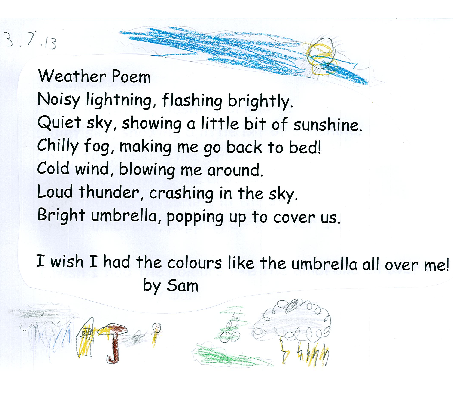 3.7.13
Weather Poem
Noisy lightning, flashing brightly.
Quiet sky, showing a little bit of sunshine.
Chilly fog, making me go back to bed!
Cold wind, blowing me around.
Loud thunder, crashing in the sky.
Bright umbrella, popping up to cover us.
I wish I had the colours like the umbrella all over me!
by Sam